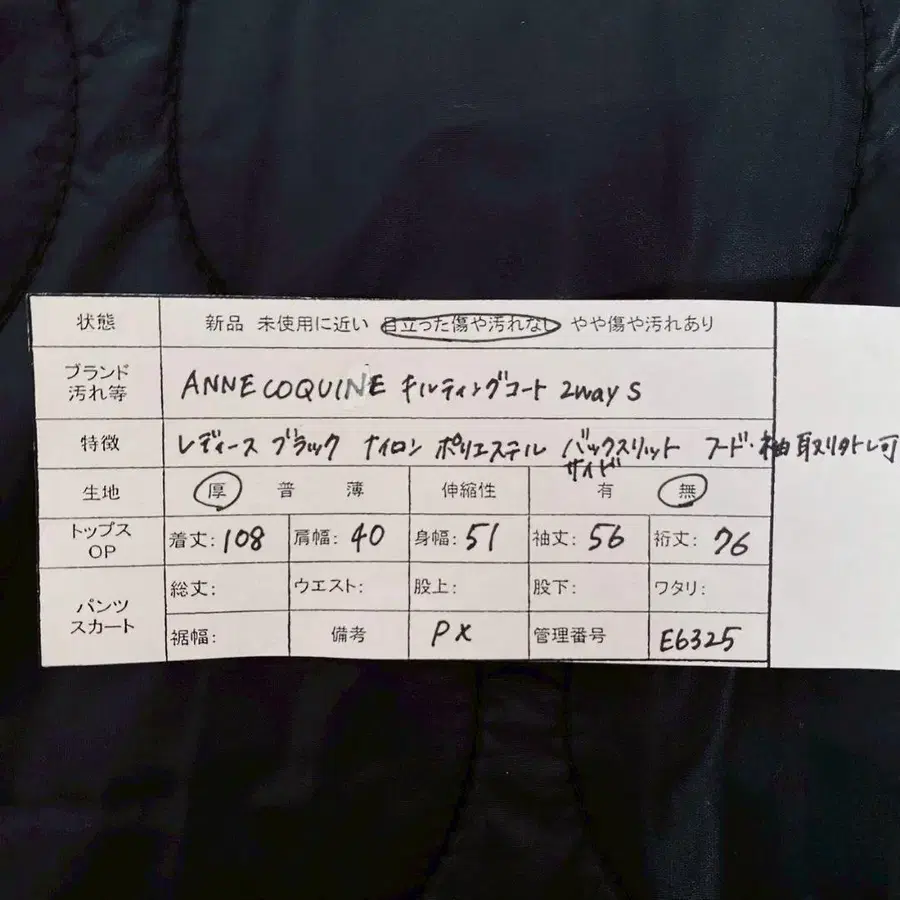 状態 新品 未使用に近い 目立った傷や汚れなし やや傷や汚れあり
ブランド
汚れ等
ANNECOQUINE キルティングコート 2way S
特徴 レディース ブラック ナイロン ポリエステル バックスリット フード・袖取り外し可
サイド
生地 厚 普 薄 伸縮性 有 無
トップス
OP
着丈: 108 肩幅: 40 身幅: 51 袖丈: 56 裄丈: 76
パンツ
スカート
総丈: ウエスト: 股上: 股下: ワタリ:
裾幅: 備考 PX 管理番号 E6325